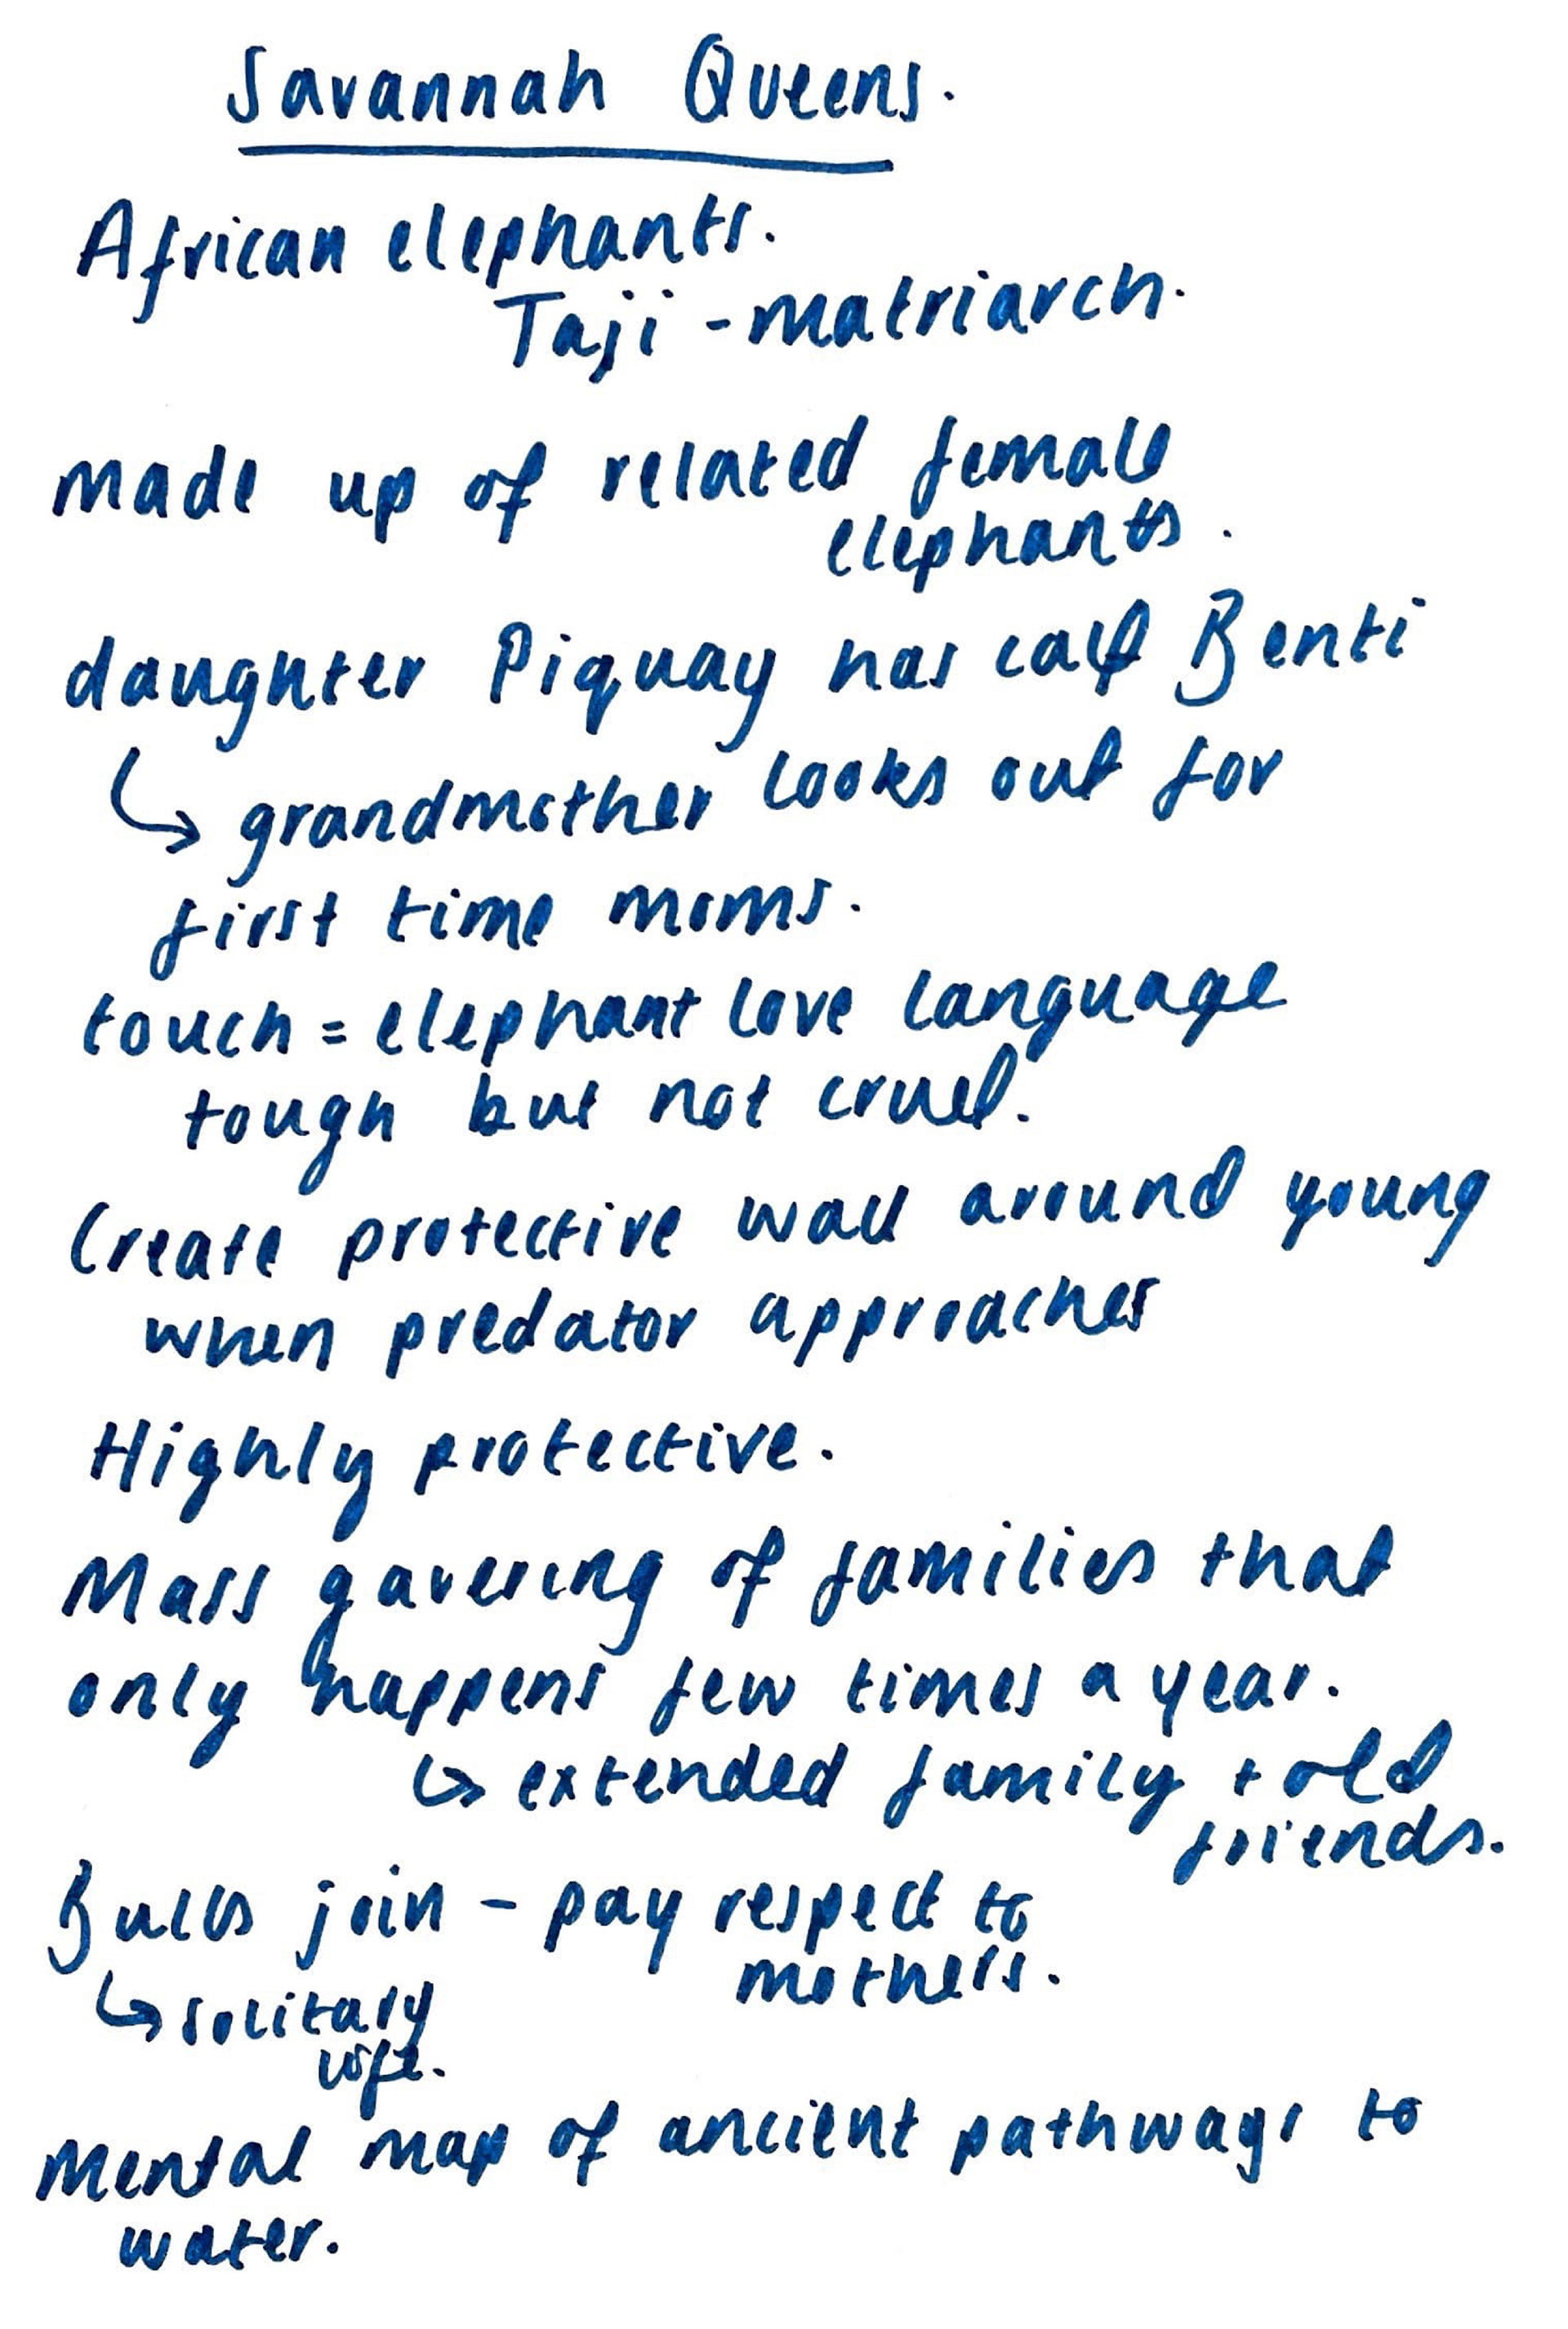 Savannah Queens.
African elephants.
Taji - matriarch.
made up of related female
elephants.
daughter Piquay has calf Benti
↳ grandmother looks out for
first time moms.
touch = elephant love language
tough but not cruel.
Create protective wall around young
when predator approaches
Highly protective.
Mass gavering of families that
only happens few times a year.
↳ extended family + old
friends.
Bulls join - pay respect to
mothers.
↳ solitary
life.
Mental map of ancient pathways to
water.